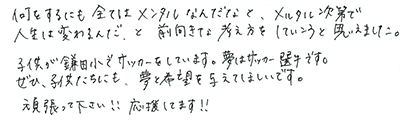 何をするにも全てはメンタルなんだなと、メルタル次第で
人生は変わるんだ、と前向きな考え方をしていこうと思いえました。
子供が鎌田小でサッカーをしています。夢はサッカー選手です。
ぜひ、子供たちにも、夢と希望を与えてほしいです。
頑張って下さい!!応援してます!!